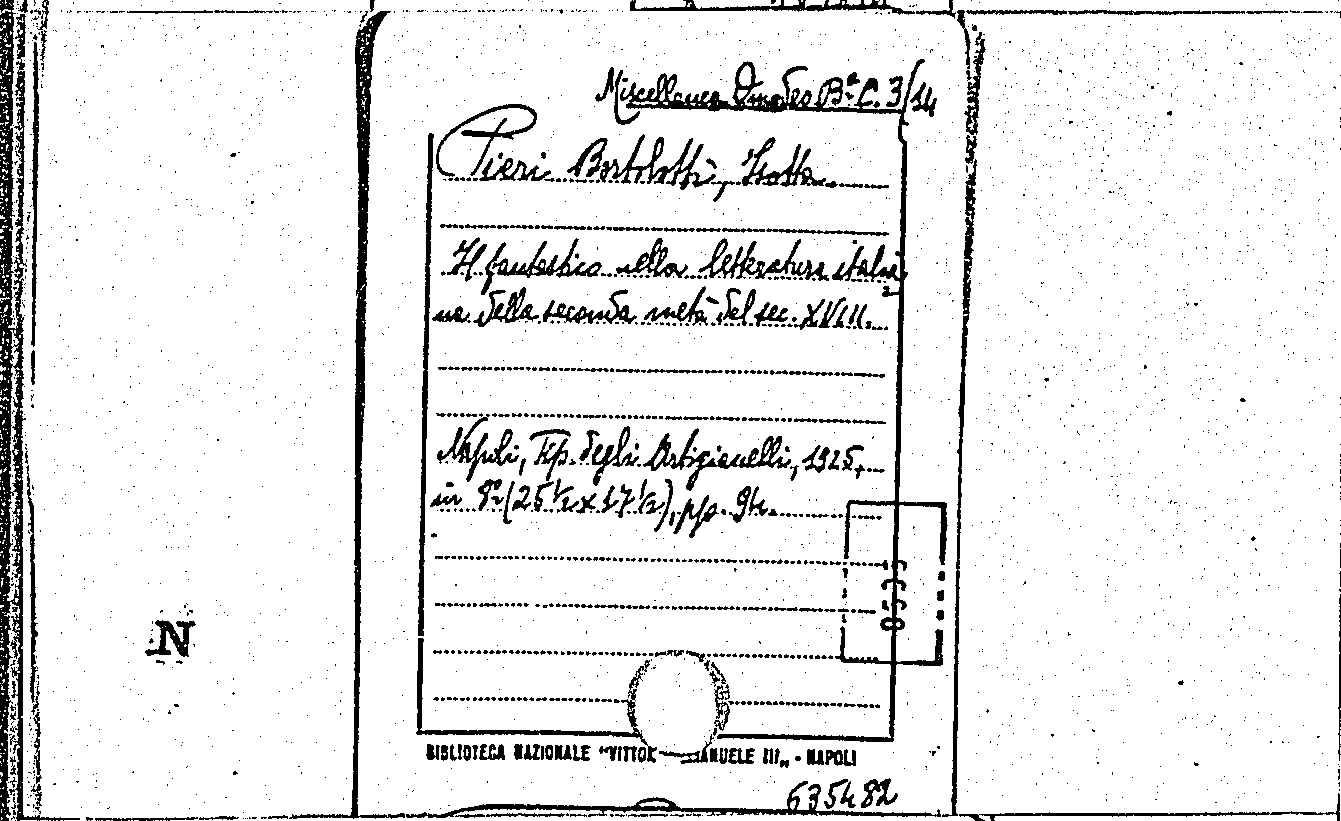 Miscellanea Omodeo Bª C. 3/14
Pieri Bortolotti, Isotta.
Il fantastico nella letteratura italia
na della seconda metà del sec. XVIII.
Napoli, Tip. degli Artigianelli, 1925,
in 8° (25 ½ x 17 ½), pp. 94.
0533
N
BIBLIOTECA NAZIONALE "VITTOR ANUELE III„ - NAPOLI
635482